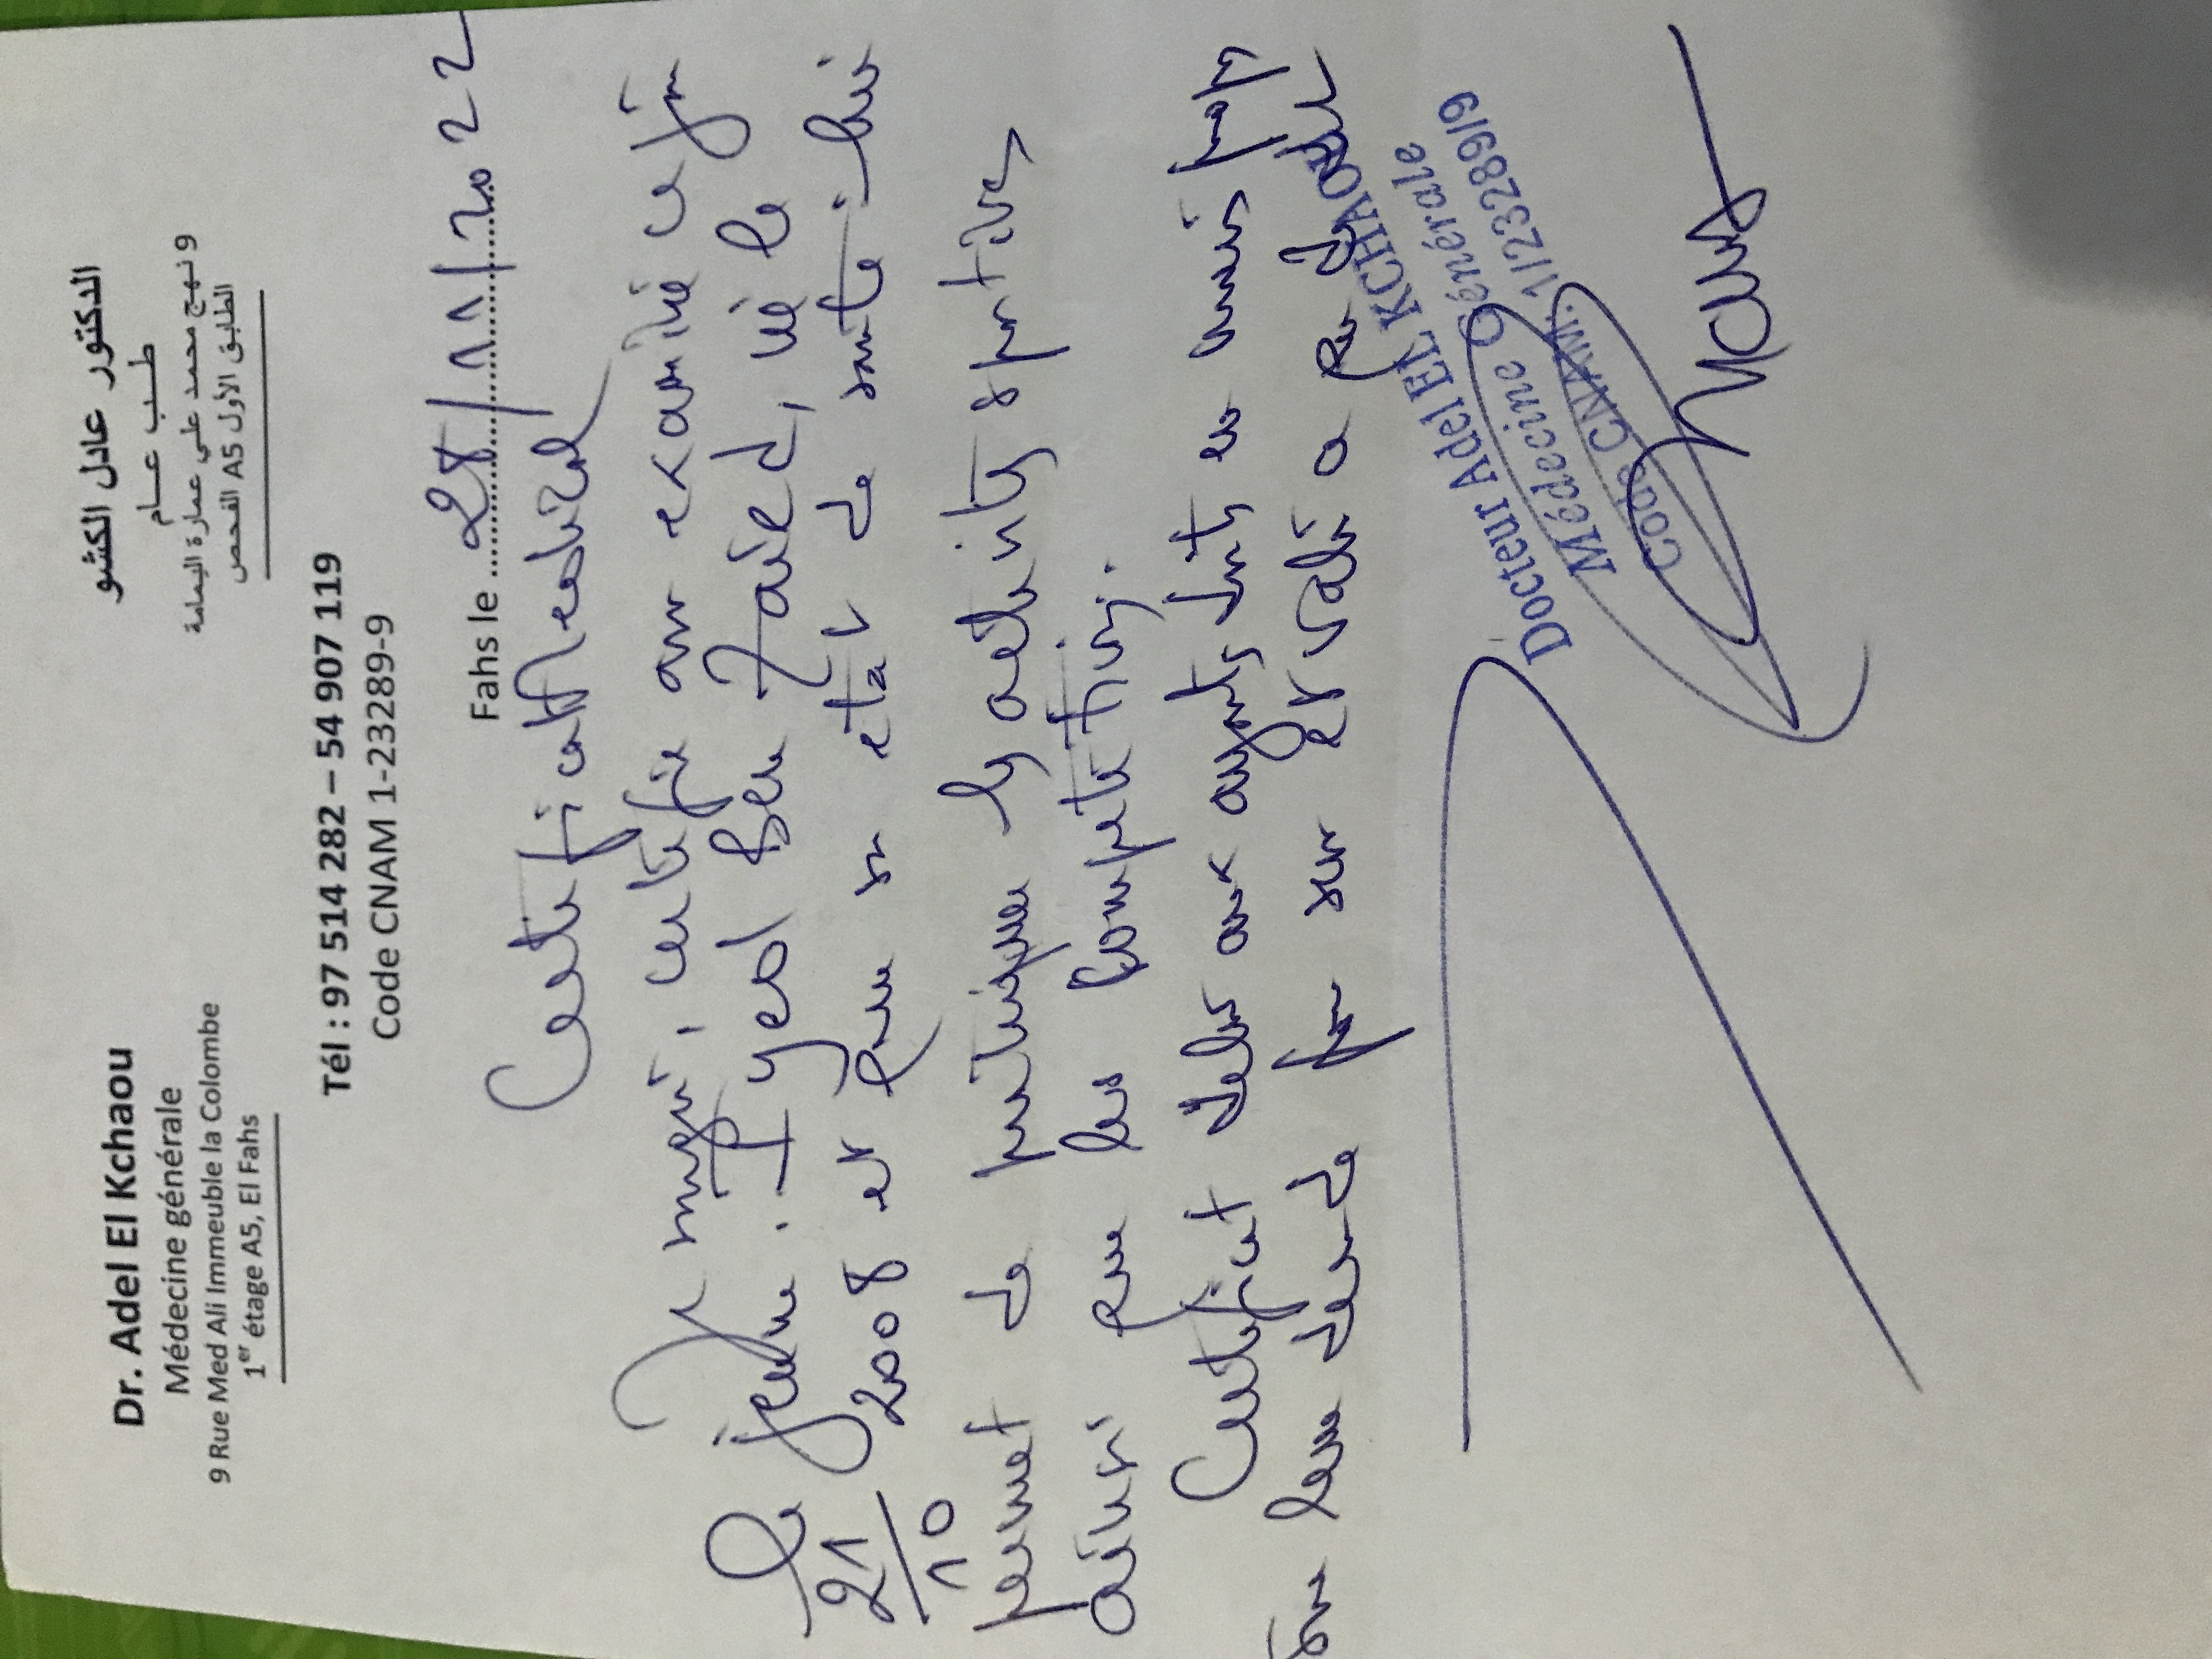 Dr. Adel El Kchaou
Médecine générale
9 Rue Med Ali Immeuble la Colombe
1er étage A5, El Fahs
الدكتور عادل الكشو
طب عام
9 نهج محمد علي عمارة اليمامة
الطابق الأول A5 الفحص
Tél : 97 514 282 – 54 907 119
Code CNAM 1-23289-9
Fahs le 28/11/2022
Certificat Medical
certifie avoir examiné ce jour
le jeune : Iyed Ben Zaied, né le
21/10 2008 et que son etat de santé lui
permet de pratiquer les activités sportives
ainsi que les compétitions.
Certificat delivré aux ayants droits en mains propres
sur leur demande pour servir et valoir ce que de droit
Docteur Adel EL KCHAOU
Médecine Générale
Code CNAM: 1/23289/9